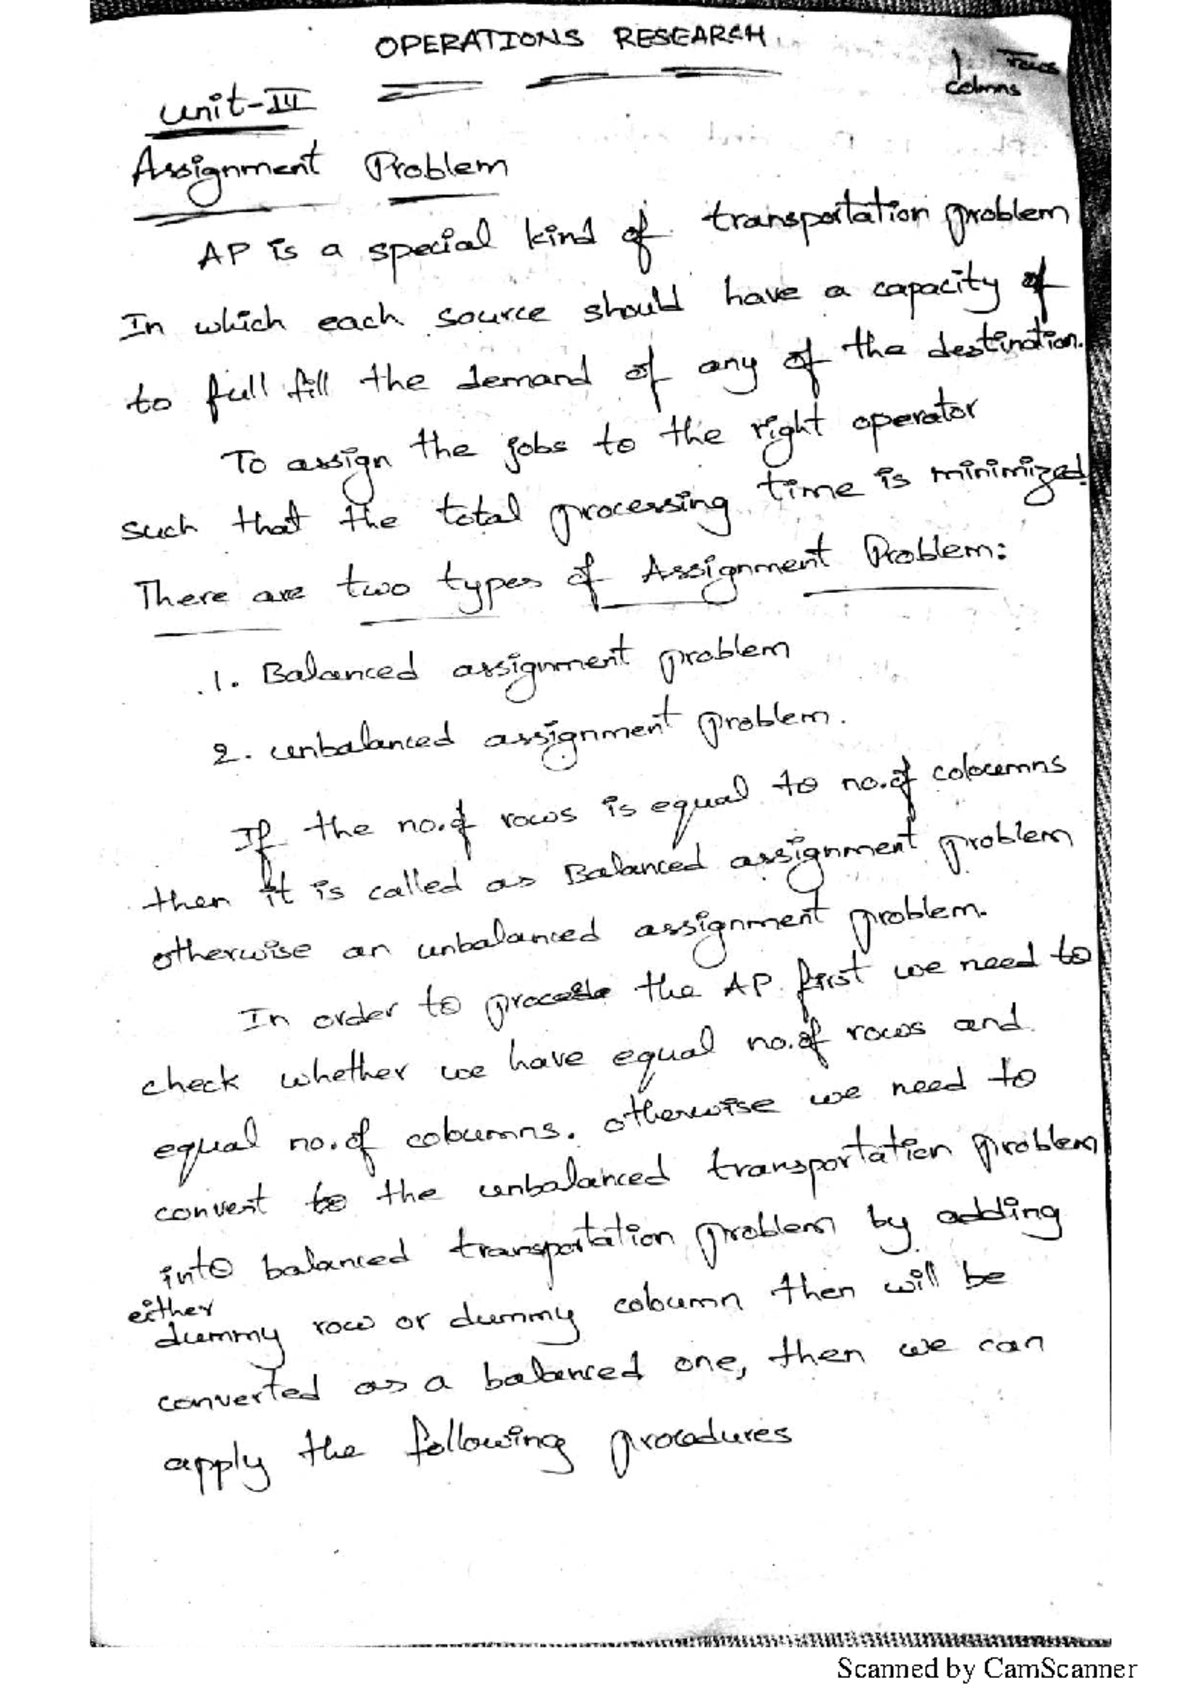 OPERATIONS RESEARCH
rows
colmns
Unit-III
Assignment Problem
AP is a special kind of transportation problem
In which each source should have a capacity of
to full fill the demand of any of the destination.
To assign the jobs to the right operator
such that the total processing time is minimized.
There are two types of Assignment Problem:
1. Balanced assignment problem
2. unbalanced assignment problem.
If the no.of rows is equal to no.of coloumns
then it is called as Balanced assignment problem
otherwise an unbalanced assignment problem.
In order to the AP first we need to
check whether we have equal no.of rows and
equal no.of coloumns. otherwise we need to
convert to the unbalanced transportation problem
into balanced transportation problem by adding
either
dummy row or dummy coloumn then will be
converted as a balanced one, then we can
apply the following procedures
Scanned by CamScanner